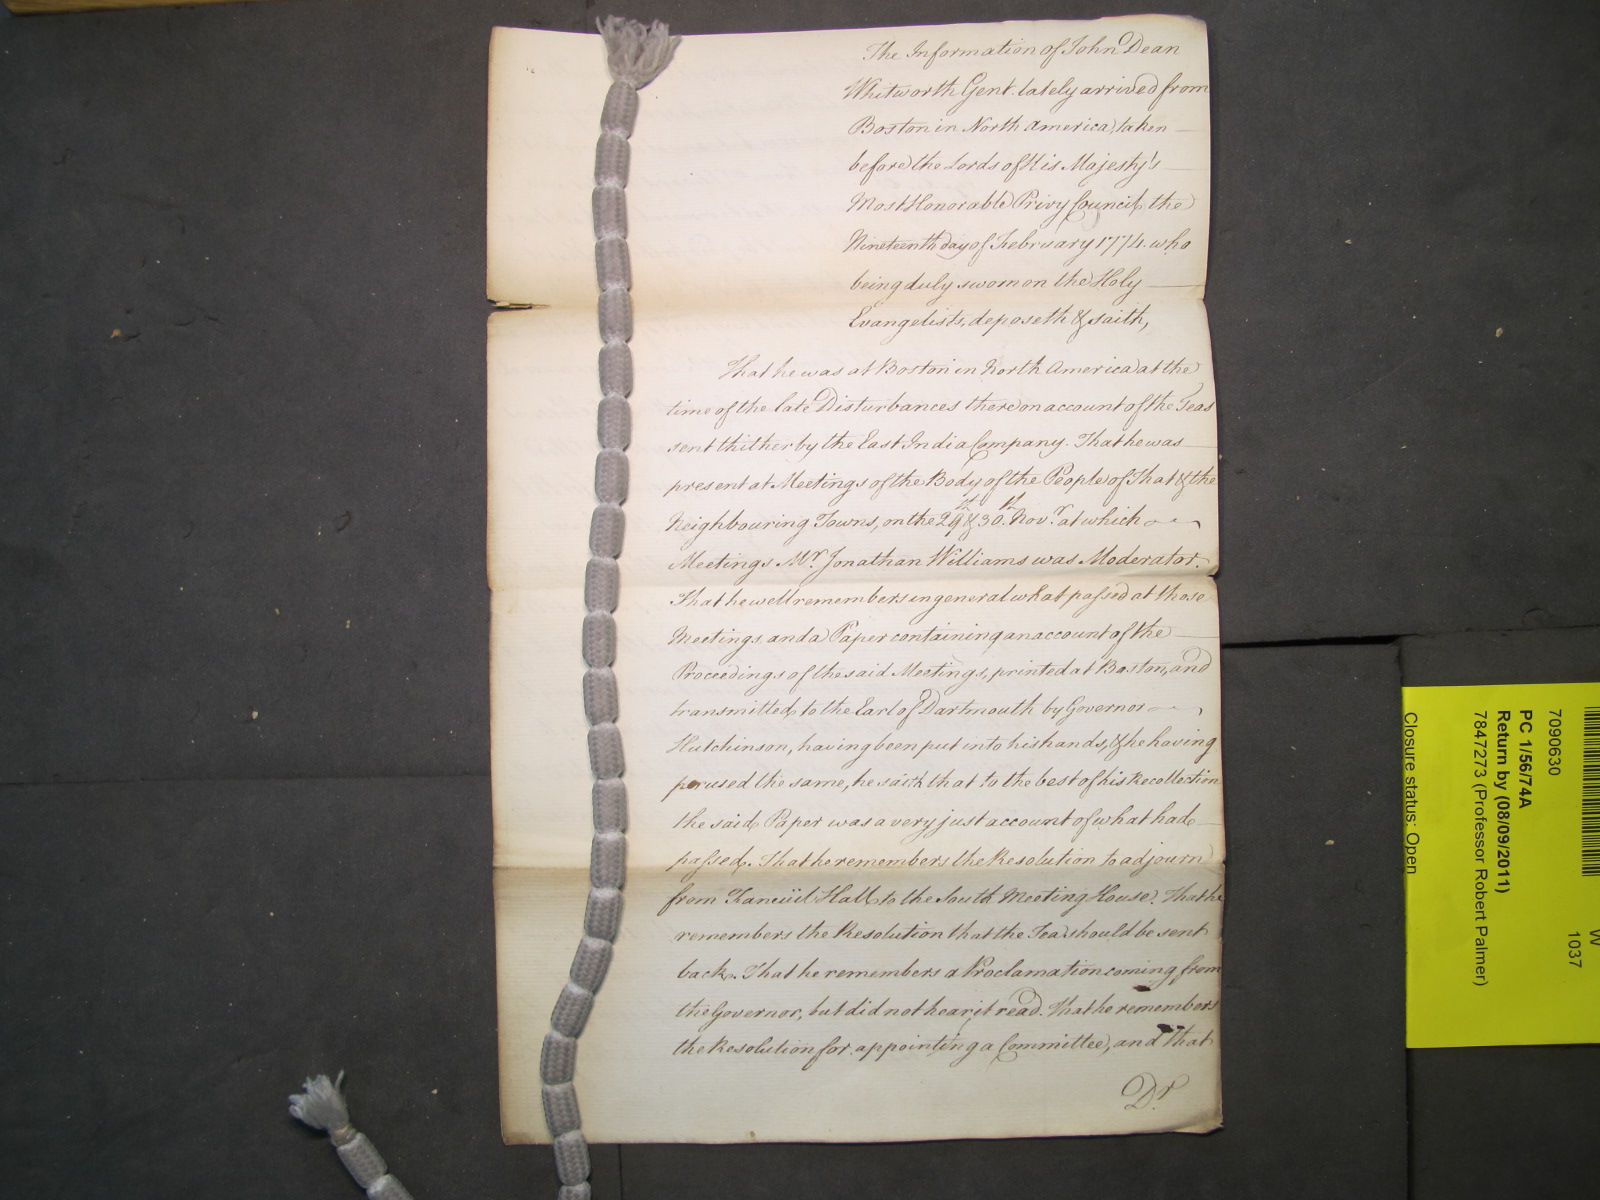 The Information of John Dean
Whitworth Gent. lately arrived from
Boston in North America, taken
before the Lords of His Majesty's
Most Honorable Privy Council, the
Nineteenth day of February 1774. who
being duly sworn on the Holy
Evangelists, deposeth & saith,
That he was at Boston in North America at the
time of the late Disturbances there on account of the Teas
sent thither by the East India Company. That he was
present at Meetings of the Body of the People of That & the
Neighbouring Towns, on the 29th & 30th Novr. at which
Meetings Mr. Jonathan Williams was Moderator.
That he well remembers in general what passed at those
Meetings and a Paper containing an account of the
Proceedings of the said Meetings, printed at Boston, and
transmitted to the Earl of Dartmouth by Governor
Hutchinson, having been put into his hands, & he having
perused the same, he saith that to the best of his Recollection
the said Paper was a very just account of what had
passed. That he remembers the Resolution to adjourn
from Faneüil Hall to the South Meeting House. That he
remembers the Resolution that the Tea should be sent
back. That he remembers a Proclamation coming from
the Governor, but did not hear it read. That he remembers
the Resolution for appointing a Committee, and that
Dr.
W
1037
7090630
PC 1/56/74A
Return by (08/09/2011)
7847273 (Professor Robert Palmer)
Closure status: Open